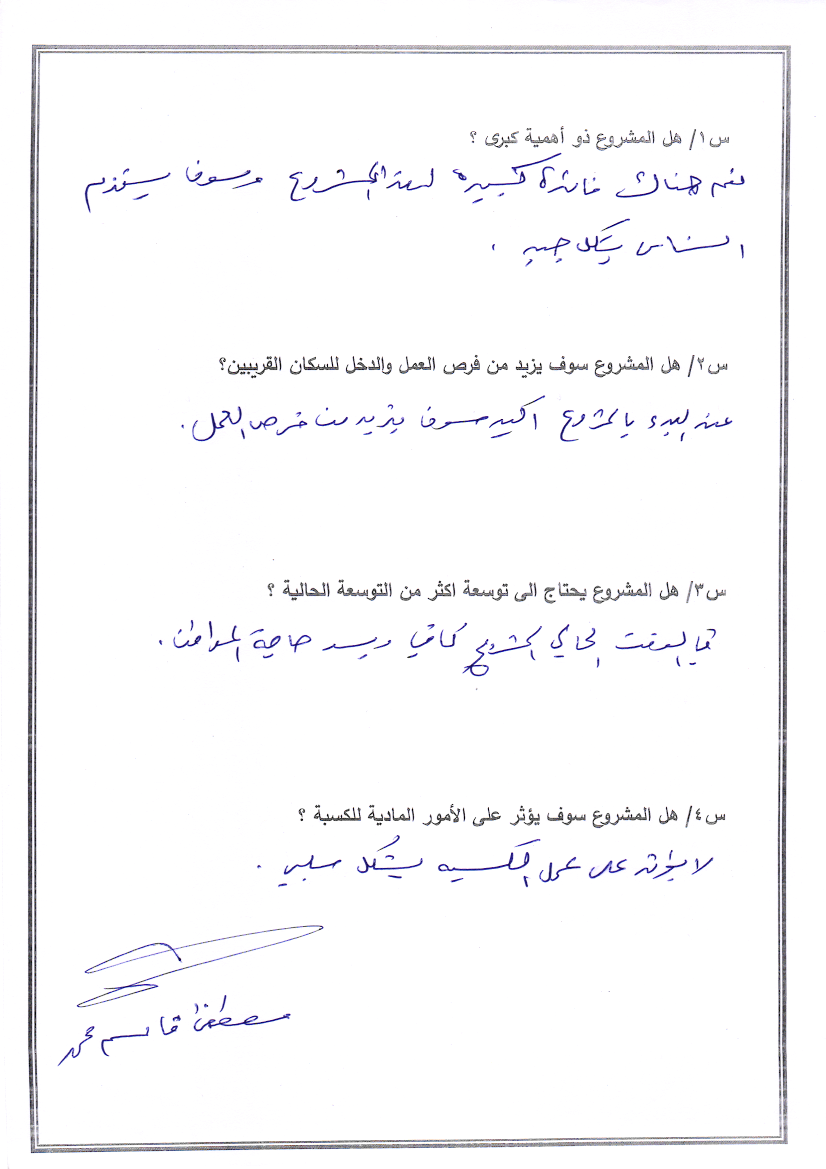 س١/ هل المشروع ذو أهمية كبرى ؟
نعم هناك فائدة كبيرة لهذا المشروع وسوف يستخدم
الناس بشكل جيد .
س٢/ هل المشروع سوف يزيد من فرص العمل والدخل للسكان القريبين؟
عند البدء بالمشروع اكيد سوف يزيد من فرص العمل .
س٣/ هل المشروع يحتاج الى توسعة اكثر من التوسعة الحالية ؟
في الوقت الحالي المشروع كافي ويسد حاجة المواطن .
س٤/ هل المشروع سوف يؤثر على الأمور المادية للكسبة ؟
لا يؤثر على عمل الكسبه بشكل سلبي .
مصطفى قاسم محمد